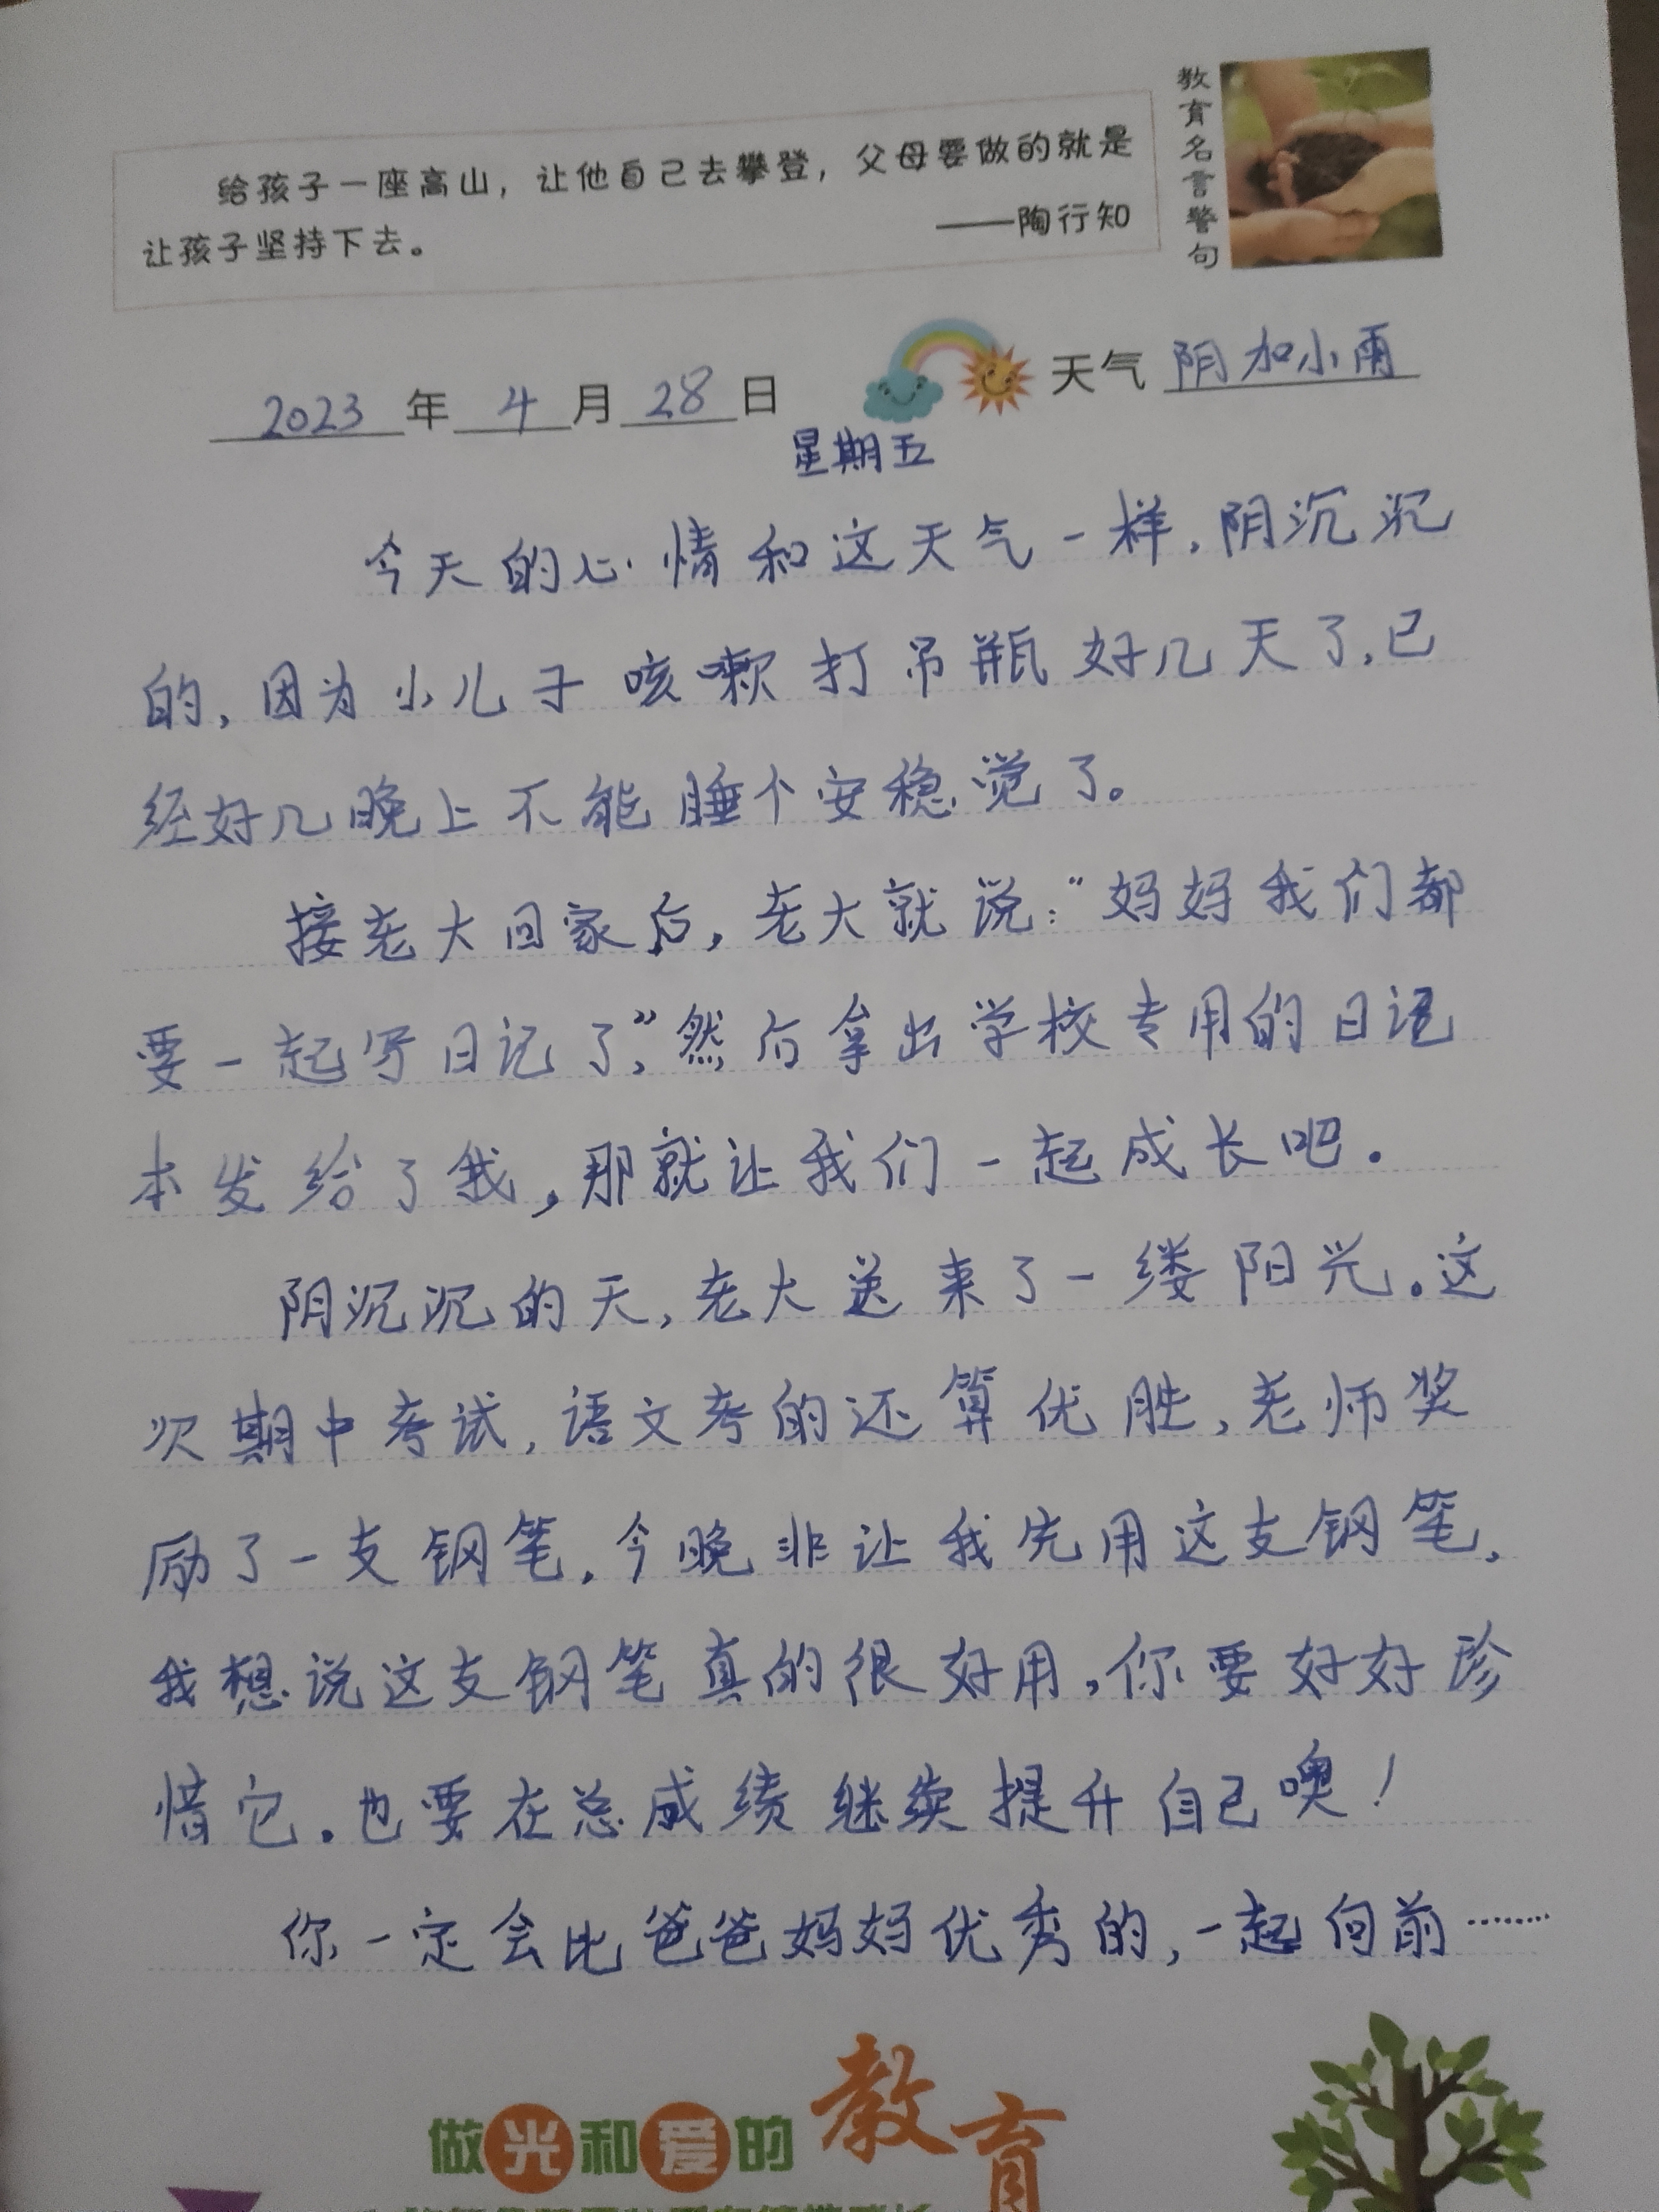 给孩子一座高山，让他自己去攀登，父母要做的就是
让孩子坚持下去。
——陶行知
教育名言警句
2023年4月28日
天气 阴加小雨
星期五
今天的心情和这天气一样，阴沉沉
的，因为小儿子咳嗽打吊瓶好几天了，已
经好几晚上不能睡个安稳觉了。
接老大回家后，老大就说："妈妈我们都
要一起写日记了，"然后拿出学校专用的日记
本发给了我，那就让我们一起成长吧。
阴沉沉的天，老大送来了一缕阳光。这
次期中考试，语文考的还算优胜，老师奖
励了一支钢笔，今晚非让我先用这支钢笔，
我想说这支钢笔真的很好用，你要好好珍
惜它。也要在总成绩继续提升自己噢！
你一定会比爸爸妈妈优秀的，一起向前……
做光和爱的教育